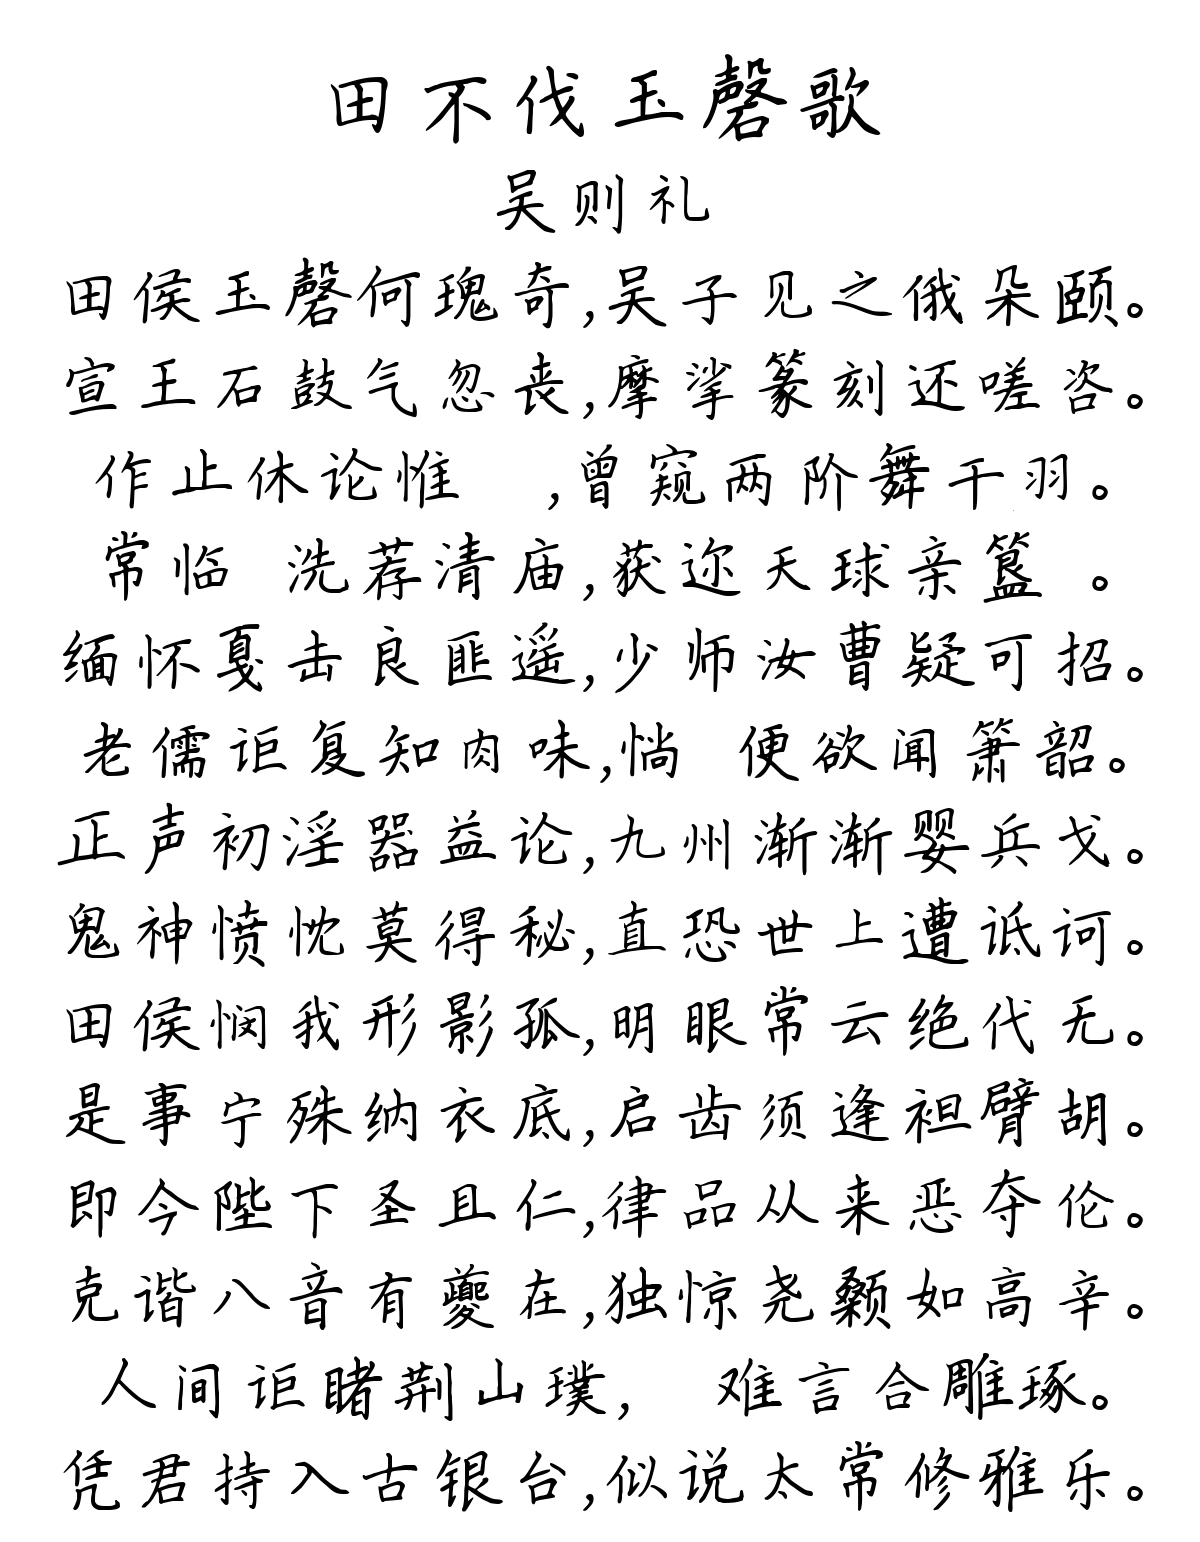 田不伐玉磬歌
吴则礼
田侯玉磬何瑰奇,吴子见之俄朵颐。
宣王石鼓气忽丧,摩挲篆刻还嗟咨。
作止休论惟 ,曾窥两阶舞干羽。
常临 洗荐清庙,获迩天球亲簋 。
缅怀戛击良匪遥,少师汝曹疑可招。
老儒讵复知肉味,惝 便欲闻箫韶。
正声初淫器益论,九州渐渐婴兵戈。
鬼神愤忱莫得秘,直恐世上遭诋诃。
田侯悯我形影孤,明眼常云绝代无。
是事宁殊纳衣底,启齿须逢袒臂胡。
即今陛下圣且仁,律品从来恶夺伦。
克谐八音有夔在,独惊尧颡如高辛。
人间讵睹荆山璞, 难言合雕琢。
凭君持入古银台,似说太常修雅乐。